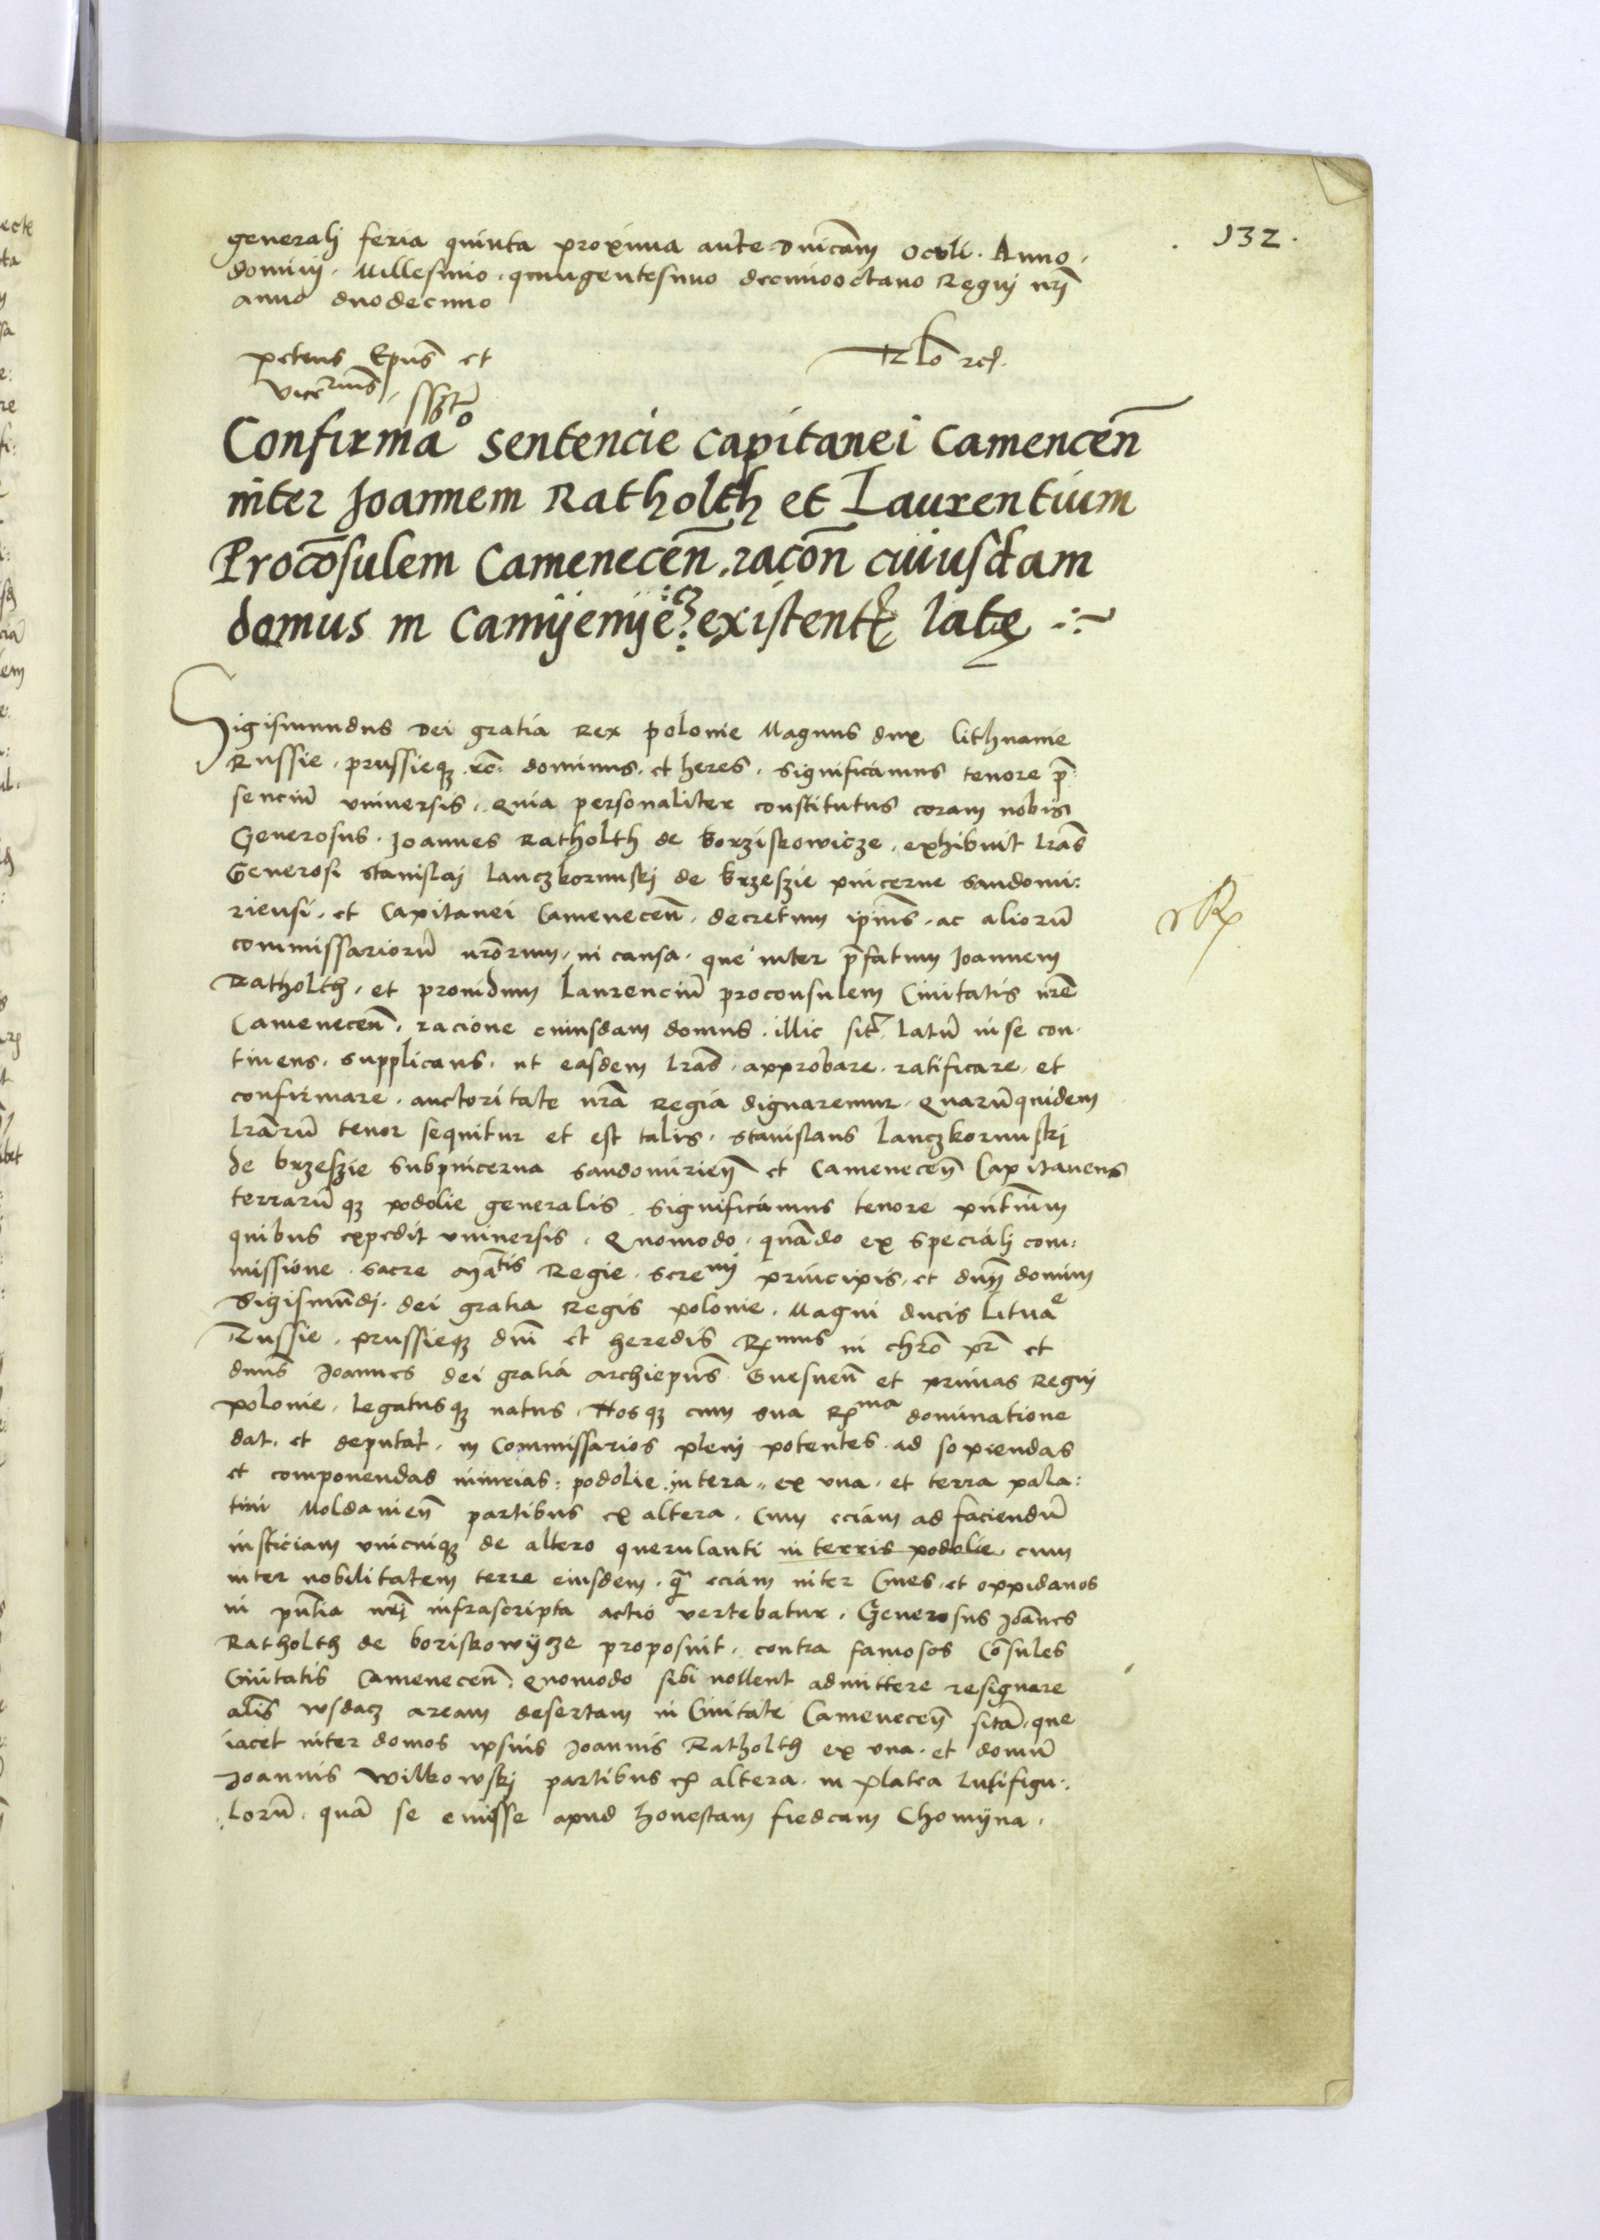 132.
generalj feria quinta proxima ante dnicam Oculi. Anno.
dominj. Millesimo. quingentesimo decimooctavo Regnj nrj
anno duodecimo
petrus Epus et
vice
Confirmao sentencie capitanei camencen
inter Joannem Ratholth et Laurentium
Proconsulem Camenecen. racon cuiusdam
domus in Camijenije existent late
Sigismundus Dei gratia Rex polonie Magnus dux lithuanie
Russie. prussieqz etc. dominus. et heres. significamus tenore p̄
senciū vniversis. Quia personaliter constitutus coram nobis
Generosus. Joannes Ratholth de borziskowicze. exhibuit lras
Generosi Stanislaj lanczkorunskj de brzeszie pincerne sandomi:
riensi. et Capitanei Camenecen. decretum ipius. ac aliorū
commissariorū nrorum. in causa. que inter p̄fatum Joannem
Ratholth. et providum laurenciū proconsulem Civitatis nre
Camenecen. racione cuiusdam domus. illic sit. latū in se con.
tinens. supplicans. ut easdem lras. approbare. ratificare. et
confirmare. auctoritate nra Regia dignaremur. Quarūquidem
lrarū tenor sequitur et est talis. Stanislaus lanczkorunskj
de brzeszie subpincerna sandomirien et Camenecen Capitaneus
terrarūqz podolie generalis. significamus tenore pntium
quibus expedit vniversis. Quomodo. quando ex specialj com:
missione. sacre Matis Regie. sere principis. et dnj domini
Sigismūdj. dei gratia Regis polonie. Magni ducis lituae
Russie. prussieqz dni et heredis Rmus in chro pr et
dnus Joannes dei gratia archiepus Gnesnen et primas Regnj
polonie. legatusqz natus. Nosqz cum sua Rma dominatione
dat. et deputat. in Commissarios plenj potentes. ad sopiendas
et componendas iniurias: podolie. in tera.. ex una. et terra pala:
tini Moldavien partibus ex altera. Cum eciam ad faciendū
iusticiam unicuiqz de altero querulanti in terris podolie cum
inter nobilitatem terre eiusdem. q̄ eciam inter Cives. et oppidanos
in pntia nrj infrascripta actio vertebatur. Generosus Joanes
Ratholth de boriskowijcze proposuit. contra famosos Cosules
Civitatis Camenecen. Quomodo sibi nollent admittere resignare
alis wsdacz aream desertam in Civitate Camenecen sitā. que
iacet inter domos ipsius Joannis Ratholth ex una. et domū
Joannis Wilkowskj partibus ex altera. in platea lutifigu:
lorū. quā se emisse apud honestam fiedcam Chomijna.